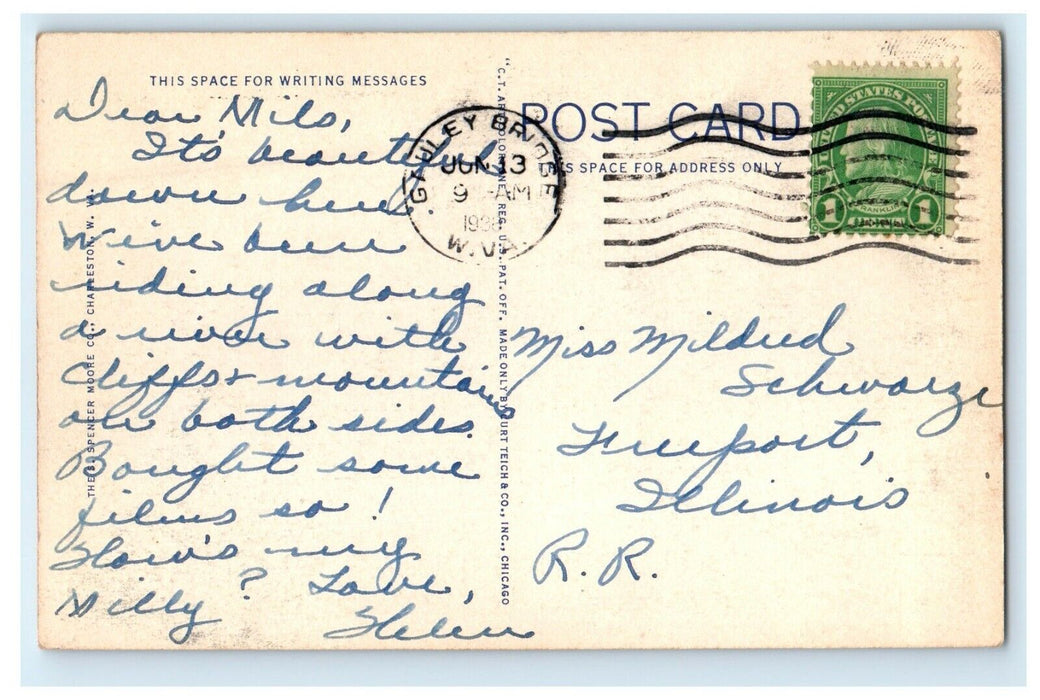 THIS SPACE FOR WRITING MESSAGES
Dear Mils,
It's beautiful
down here.
We've been
riding along
a river with
cliffs & mountains
on both sides.
Bought some
films so!
How's my
Milly? Love,
Helen
THE S. SPENCER MOORE CO., CHARLESTON, W. VA.
"C.T. ART-COLORTONE" REG. U.S. PAT. OFF. MADE ONLY BY CURT TEICH & CO., INC., CHICAGO
POST CARD
THIS SPACE FOR ADDRESS ONLY
GAULEY BRIDGE
JUN 13
9 AM
W.VA.
UNITED STATES POSTAGE
FRANKLIN
1 1
Miss Mildred
Schwarze
Freeport,
Illinois
R.R.